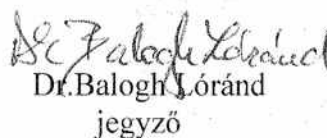 Dr Balogh Lóránd
Dr.Balogh Lóránd
jegyző